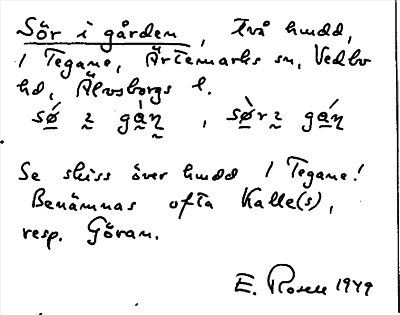 Sör i gården, två hmdd,
1 Tegane, Ärtemarks sn, Vedbo
hd, Älvsborgs l.
sø ɀ gaŋ, sørɀ gaŋ
Se skiss över hmdd 1 Tegane!
Benämnas ofta Kalle(s),
resp. Göran.
E. Rosell 1949